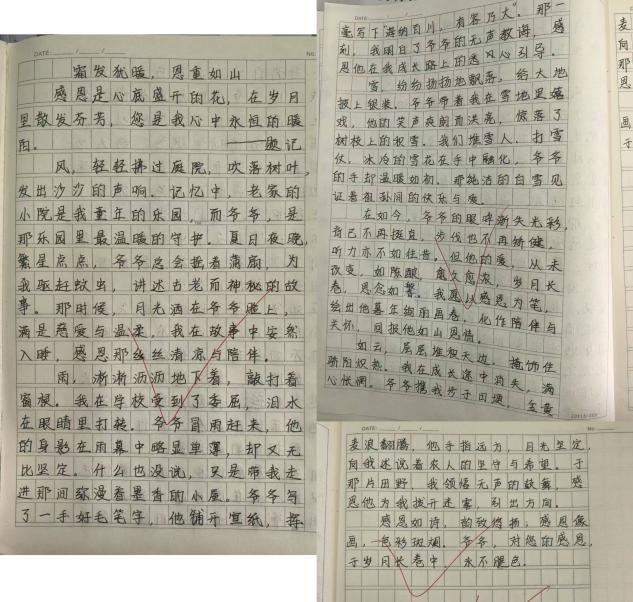 DATE: / /
霜发犹暖，恩重如山
感恩是心底盛开的花，在岁月
里散发芬芳，您是我心中永恒的暖
阳。 ——题记
风，轻轻拂过庭院，吹落树叶，
发出沙沙的声响。记忆中，老家的
小院是我童年的乐园，而爷爷，是
那乐园里最温暖的守护。夏日夜晚，
繁星点点，爷爷总会摇着蒲扇，为
我驱赶蚊虫，讲述古老而神秘的故
事。那时候，月光洒在爷爷脸上，
满是慈爱与温柔，我在故事中安然
入睡，感恩那丝丝清凉与陪伴。
雨，淅淅沥沥地下着，敲打着
窗棂。我在学校受到了委屈，泪水
在眼睛里打转。爷爷冒雨赶来，他
的身影在雨幕中略显单薄，却又无
比坚定。什么也没说，只是带我走
进那间弥漫着墨香的小屋。爷爷写
了一手好毛笔字，他铺开宣纸，挥
毫写下“海纳百川，有容乃大”。那一
刻，我明白了爷爷的无声教诲，感
恩他在我成长路上的悉心引导。
雪，纷纷扬扬地飘落，给大地
披上银装。爷爷带着我在雪地里嬉
戏，他的笑声爽朗而洪亮，惊落了
树枝上的积雪。我们堆雪人，打雪
仗，冰冷的雪花在手中融化，爷爷
的手却温暖如初。那纯洁的白雪见
证着祖孙间的快乐与爱。
在如今，爷爷的眼眸渐失光彩，
背已不再挺直，步伐也不再矫健，
听力亦不如往昔。但他的爱，从未
改变，如陈酿，愈久愈浓，岁月长
卷，恩念如馨。我愿以感恩为笔，
绘出他暮年绚丽画卷，化作陪伴与
关怀，回报他如山恩情。
如云，层层堆积天边，掩饰住
骄阳炽热。我在成长途中迷失，满
心怅惘。爷爷携我步于田埂，金黄
DATE: / /
麦浪翻腾，他手指远方，目光坚定，
向我述说着农人的坚守与希望。于
那片田野，我领悟无声的鼓舞，感
恩他为我拨开迷雾，引出方向。
感恩如诗，韵致悠扬；感恩像
画，色彩斑斓。爷爷，对您的感恩，
于岁月长卷中，永不褪色。